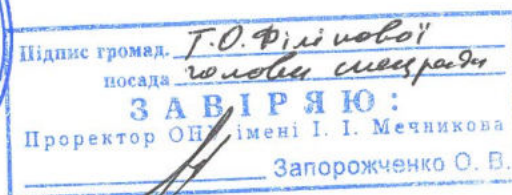 Підпис громад. Т.О. Філіпової
посада голови спецради
ЗАВІРЯЮ:
Проректор ОНУ імені І. І. Мечникова
Запорожченко О. В.